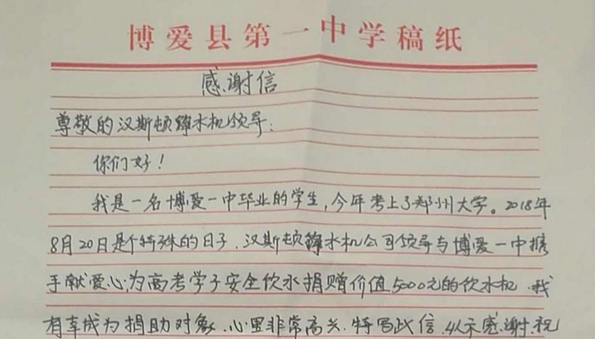 博爱县第一中学稿纸
感谢信
尊敬的汉斯顿净水机领导：
你们好！
我是一名博爱一中毕业的学生，今年考上了郑州大学。2018年
8月20日是个特殊的日子，汉斯顿净水机公司领导与博爱一中携
手献爱心，为高考学子安全饮水捐赠价值5000元的饮水机，我
有幸成为捐助对象，心里非常高兴，特写此信，以示感谢，祝